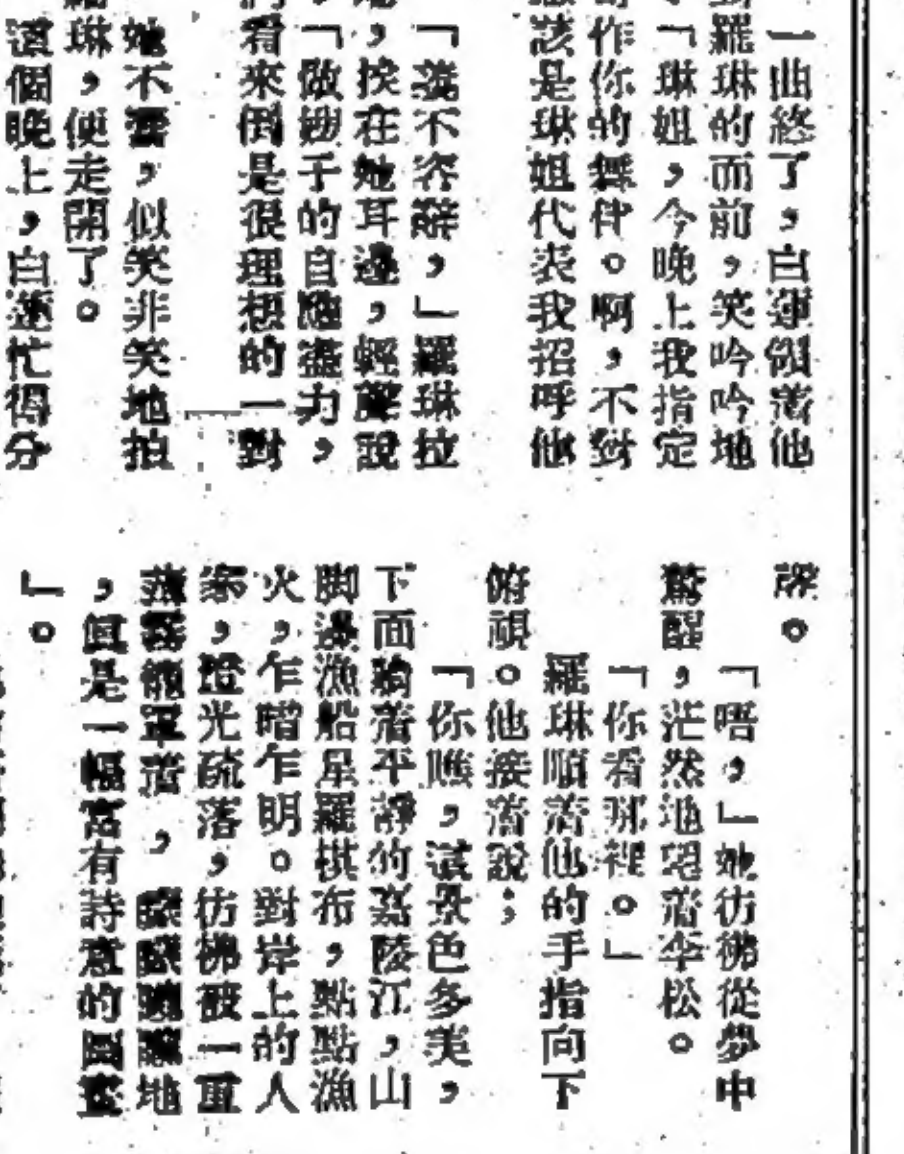 一曲終了，白蓮領着他
羅琳的面前，笑吟吟地
「琳姐，今晚上我指定
作你的舞伴。啊，不對
該是琳姐代表我招呼他
「義不容辭，」羅琳拉
，挨在她耳邊，輕聲說
「做嫂子的自應盡力，
看來倒是很理想的一對
她不響，似笑非笑地拍
琳，便走開了。
這個晚上，白蓮忙得分
「唔，」她彷彿從夢中
驚醒，茫然地望着李松。
「你看那裡。」
羅琳順着他的手指向下
俯視。他接着說；
「你瞧，這景色多美，
下面躺着平靜的嘉陵江，山
脚邊漁船星羅棋布，點點漁
火，乍暗乍明。對岸上的人
家，燈光疏落，彷彿被一重
薄霧籠罩着，朦朦朧朧地
，眞是一幅富有詩意的圖畫
」。